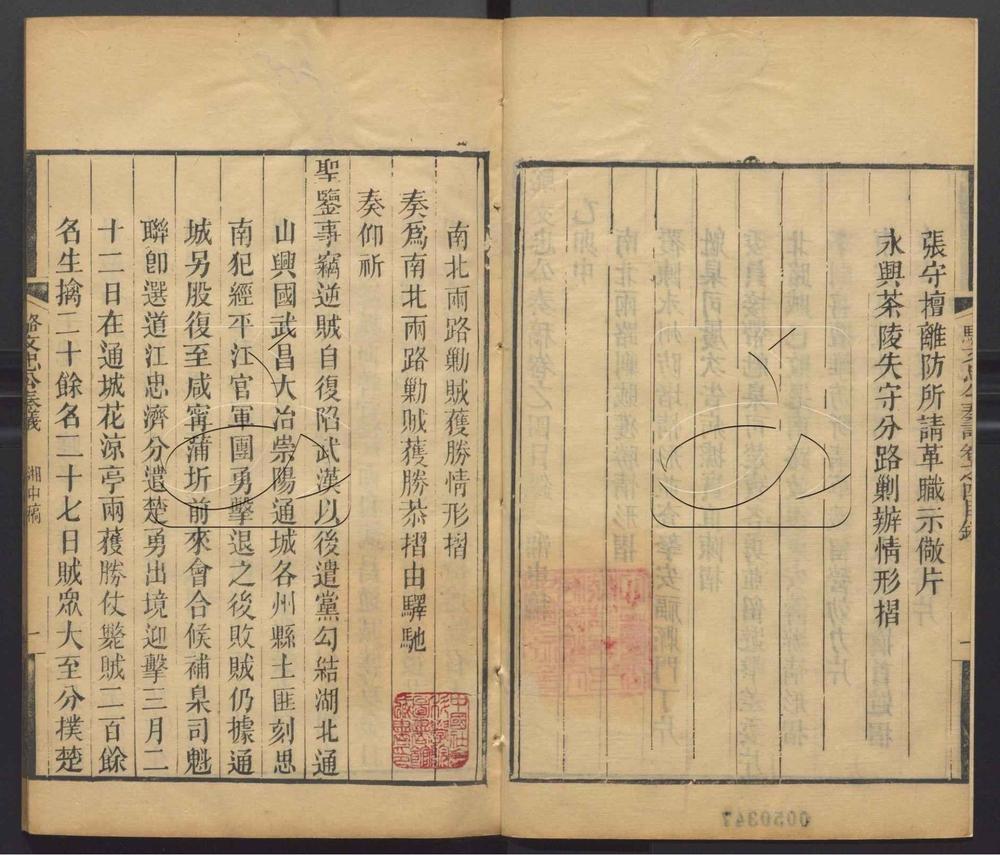 張守擅離防所請革職示儆片
永興茶陵失守分路剿辦情形摺
駱文忠公奏議 卷之四目錄
南北兩路勦賊獲勝情形摺
奏爲南北兩路勦賊獲勝恭摺由驛馳
奏仰祈
聖鑒事竊逆賊自復陷武漢以後遣黨勾結湖北通
山興國武昌大冶崇陽通城各州縣土匪刻思
南犯經平江官軍團勇擊退之後敗賊仍據通
城另股復至咸甯蒲圻前來會合候補臬司魁
聯卽選道江忠濟分遣楚勇出境迎擊三月二
十二日在通城花涼亭兩獲勝仗斃賊二百餘
名生擒二十餘名二十七日賊眾大至分撲楚
駱文忠公奏議 湘中稿 一
0050347